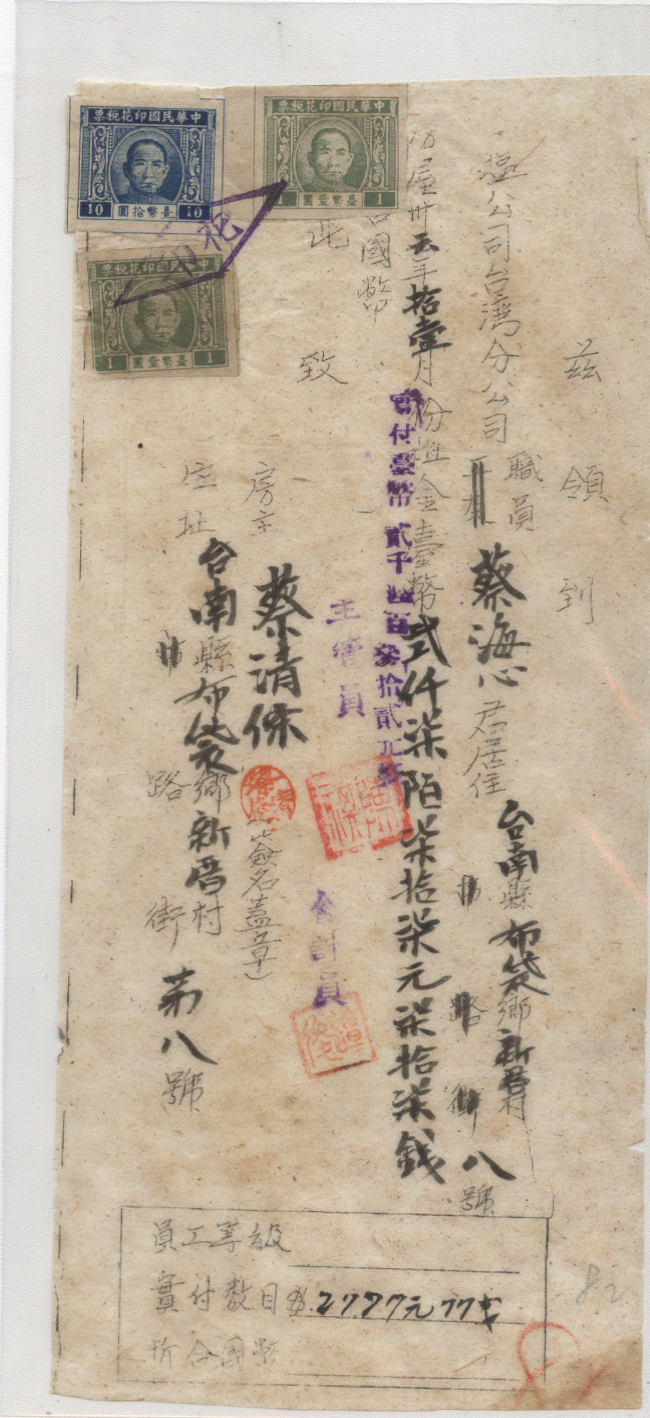 茲領到
塩公司台灣分公司職員蔡海心君居住台南縣布袋鄉新厝村路街八號
房屋卅五年拾壹月份租金臺幣弍仟柒陌柒拾柒元柒拾柒錢
實付臺幣貳千百參拾貳元整
合國幣
此致
主管員
會計員
房主蔡清條
(簽名蓋章)
住址台南縣布袋鄉新厝村
路街第八號
中華民國印花稅票
10 臺幣拾圓 10
中華民國印花稅票
1 臺幣壹圓 1
中華民國印花稅票
1 臺幣壹圓 1
員工等級
實付数目 2777元77戋
折合國幣
82